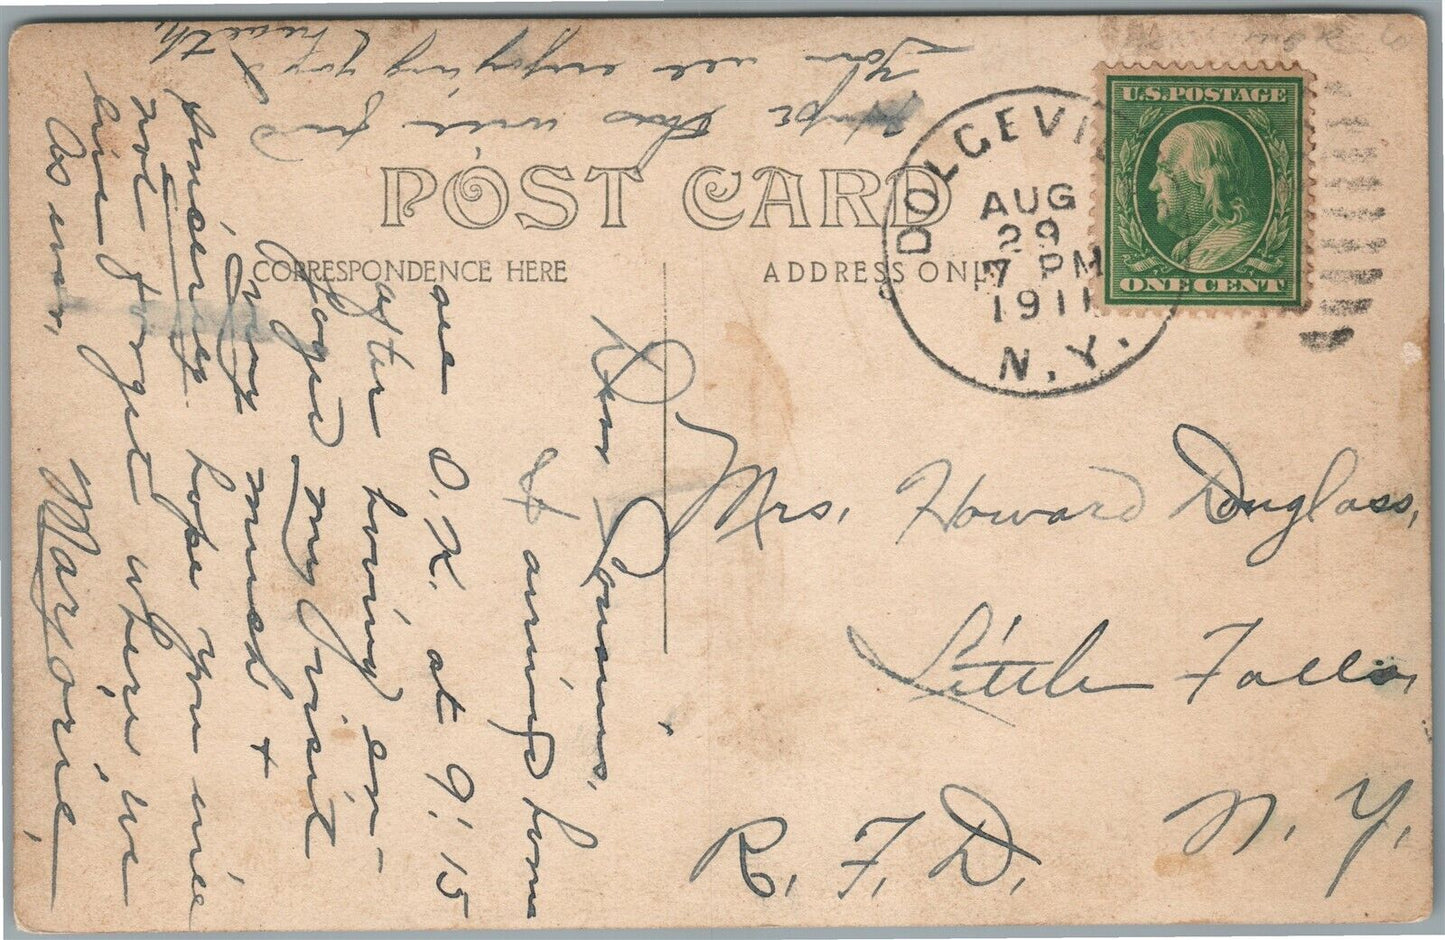 POST CARD
CORRESPONDENCE HERE
ADDRESS ONLY
U.S. POSTAGE
ONE CENT
DOLGEVI
AUG
29
7 PM
1911
N.Y.
Mrs. Howard Douglass,
Little Falls,
R. F. D. N. Y.
Dear Cousins,
I arrived home
one O.K. at 9:15
after having en-
joyed my visit
very much +
sincerely hope you will
not forget where we
live.
As ever,
Marjorie.
Hope this will find
You all enjoying good
health,